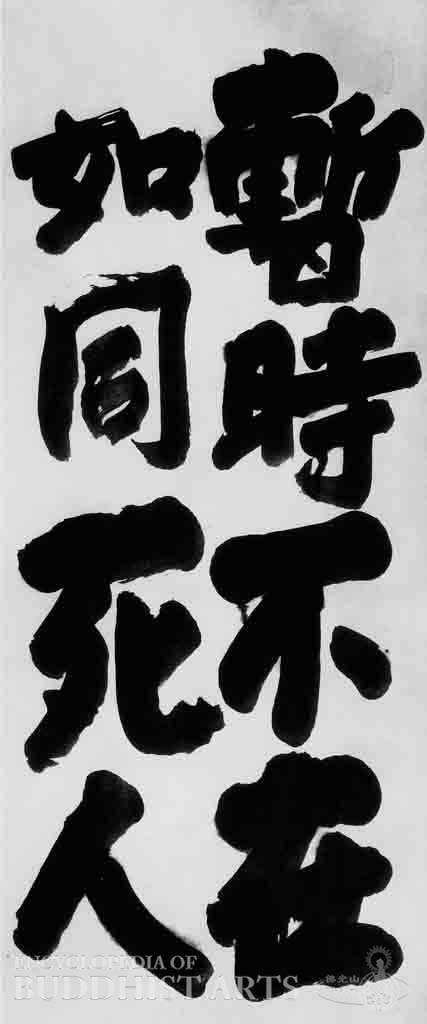 暫時不在
如同死人
ENCYCLOPEDIA OF
BUDDHIST ARTS
佛光山